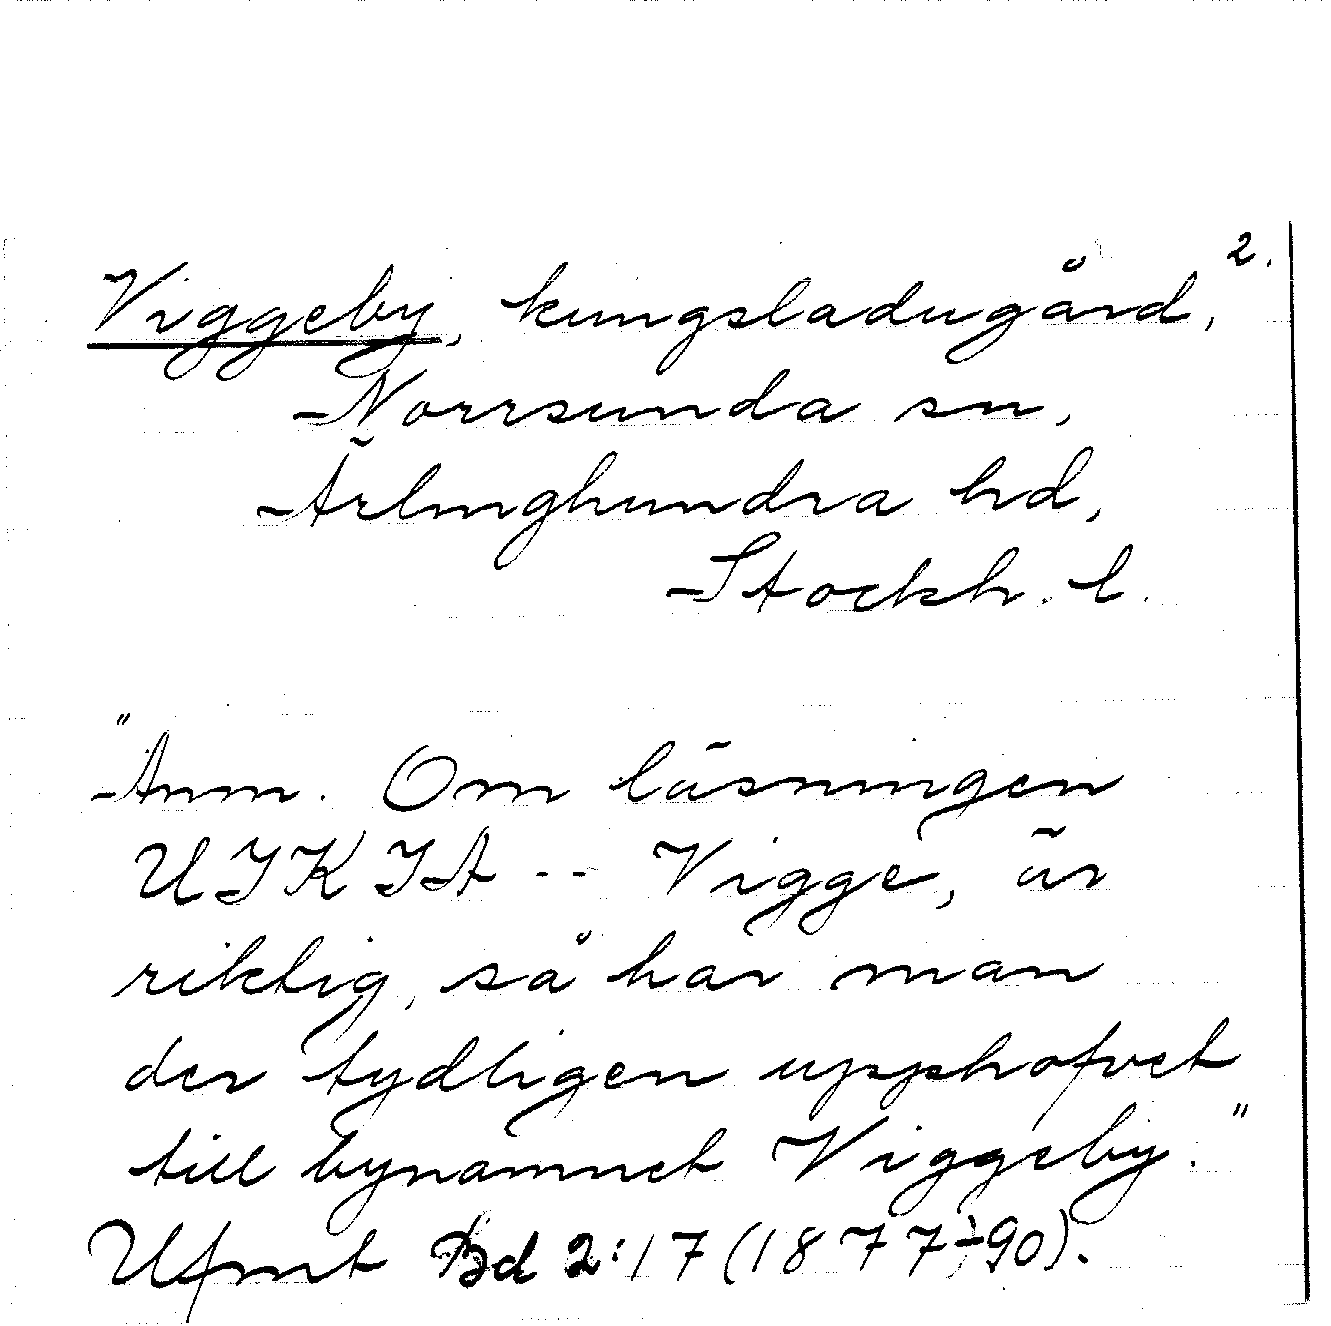 2.
Viggeby, kungsladugård,
Norrsunda sn,
Ärlinghundra hd,
Stockh. l.
"Anm. Om läsningen
UIKIA -- Vigge, är
riktig, så har man
der tydligen upphofvet
till bynamnet Viggeby."
Ufmt Bd 2:17 (1877-90).